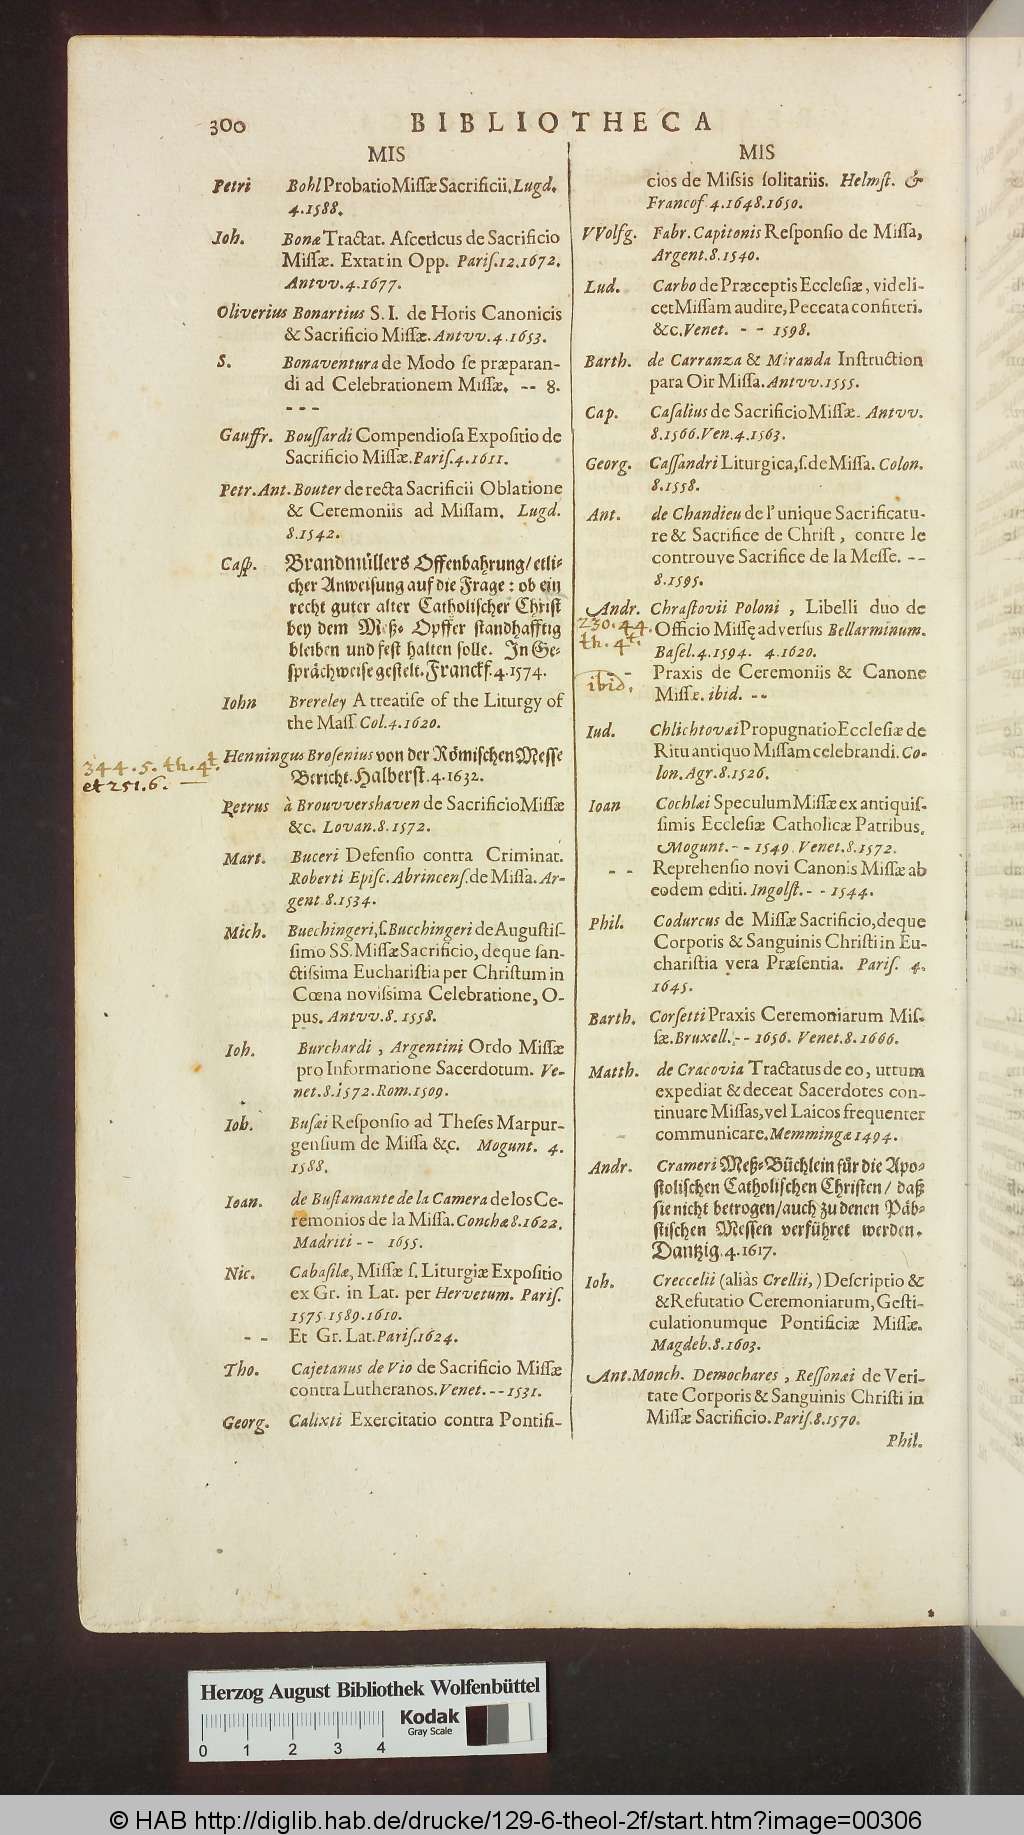 300 BIBLIOTHECA
MIS
Petri Bohl Probatio Missæ Sacrificii. Lugd.
4.1588.
Ioh. Bonæ Tractat. Asceticus de Sacrificio
Missæ. Extat in Opp. Paris.12.1672.
Antvv.4.1677.
Oliverius Bonartius S.I. de Horis Canonicis
& Sacrificio Missæ. Antvv.4.1653.
S. Bonaventura de Modo se præparan-
di ad Celebrationem Missæ. -- 8.
---
Gauffr. Boussardi Compendiosa Expositio de
Sacrificio Missæ. Paris.4.1611.
Petr. Ant. Bouter de recta Sacrificii Oblatione
& Ceremoniis ad Missam. Lugd.
8.1542.
Casp. Brandmüllers Offenbahrung/ etli-
cher Anweisung auf die Frage: ob ein
recht guter alter Catholischer Christ
bey dem Meß-Opffer standhafftig
bleiben und fest halten solle. In Ge-
sprächweise gestelt. Franckf.4.1574.
Iohn Brereley A treatise of the Liturgy of
the Mass Col.4.1620.
344.5. th. 4t.
et 251.6. —
Henningus Brosenius von der Römischen Messe
Bericht. Halberst.4.1632.
Petrus à Brouvvershaven de Sacrificio Missæ
&c. Lovan.8.1572.
Mart. Buceri Defensio contra Criminat.
Roberti Episc. Abrincens. de Missa. Ar-
gent 8.1534.
Mich. Buechingeri, s. Bucchingeri de Augustis-
simo SS. Missæ Sacrificio, deque san-
ctissima Eucharistia per Christum in
Cœna novissima Celebratione, O-
pus. Antvv.8.1558.
Ioh. Burchardi, Argentini Ordo Missæ
pro Informatione Sacerdotum. Ve-
net.8.1572. Rom.1509.
Ioh. Busæi Responsio ad Theses Marpur-
gensium de Missa &c. Mogunt. 4.
1588.
Ioan. de Bustamante de la Camera de los Ce-
remonios de la Missa. Conchæ 8.1622.
Madriti -- 1655.
Nic. Cabasilæ, Missæ s. Liturgiæ Expositio
ex Gr. in Lat. per Hervetum. Paris.
1575.1589.1610.
-- Et Gr. Lat. Paris.1624.
Tho. Cajetanus de Vio de Sacrificio Missæ
contra Lutheranos. Venet. -- 1531.
Georg. Calixti Exercitatio contra Pontifi-
MIS
cios de Missis solitariis. Helmst. &
Francof 4.1648.1650.
VVolfg. Fabr. Capitonis Responsio de Missa,
Argent.8.1540.
Lud. Carbo de Præceptis Ecclesiæ, videli-
cet Missam audire, Peccata confiteri.
&c. Venet. -- 1598.
Barth. de Carranza & Miranda Instruction
para Oir Missa. Antvv.1555.
Cap. Casalius de Sacrificio Missæ. Antvv.
8.1566. Ven.4.1563.
Georg. Cassandri Liturgica, s. de Missa. Colon.
8.1558.
Ant. de Chandieu de l'unique Sacrificatu-
re & Sacrifice de Christ, contre le
controuve Sacrifice de la Messe. --
8.1595.
Andr. Chrastovii Poloni, Libelli duo de
230.44. Officio Missę adversus Bellarminum.
th. 4t. Basel.4.1594. 4.1620.
ibid. -- Praxis de Ceremoniis & Canone
Missæ. ibid. --
Iud. Chlichtovæi Propugnatio Ecclesiæ de
Ritu antiquo Missam celebrandi. Co-
lon. Agr.8.1526.
Ioan Cochlæi Speculum Missæ ex antiquis-
simis Ecclesiæ Catholicæ Patribus.
Mogunt. -- 1549. Venet.8.1572.
-- Reprehensio novi Canonis Missæ ab
eodem editi. Ingolst. -- 1544.
Phil. Codurcus de Missæ Sacrificio, deque
Corporis & Sanguinis Christi in Eu-
charistia vera Præsentia. Paris. 4.
1645.
Barth. Corsetti Praxis Ceremoniarum Mis-
sæ. Bruxell. -- 1656. Venet.8.1666.
Matth. de Cracovia Tractatus de eo, utrum
expediat & deceat Sacerdotes con-
tinuare Missas, vel Laicos frequenter
communicare. Memmingæ 1494.
Andr. Crameri Meß-Büchlein für die Apo-
stolischen Catholischen Christen/ daß
sie nicht betrogen/ auch zu denen Päb-
stischen Messen verführet werden.
Dantzig.4.1617.
Ioh. Creccelii (aliàs Crellii,) Descriptio &
& Refutatio Ceremoniarum, Gesti-
culationumque Pontificiæ Missæ.
Magdeb.8.1603.
Ant. Monch. Demochares, Ressonæi de Veri-
tate Corporis & Sanguinis Christi in
Missæ Sacrificio. Paris.8.1570.
Phil.
Herzog August Bibliothek Wolfenbüttel
Kodak
Gray Scale
0 1 2 3 4
© HAB http://diglib.hab.de/drucke/129-6-theol-2f/start.htm?image=00306